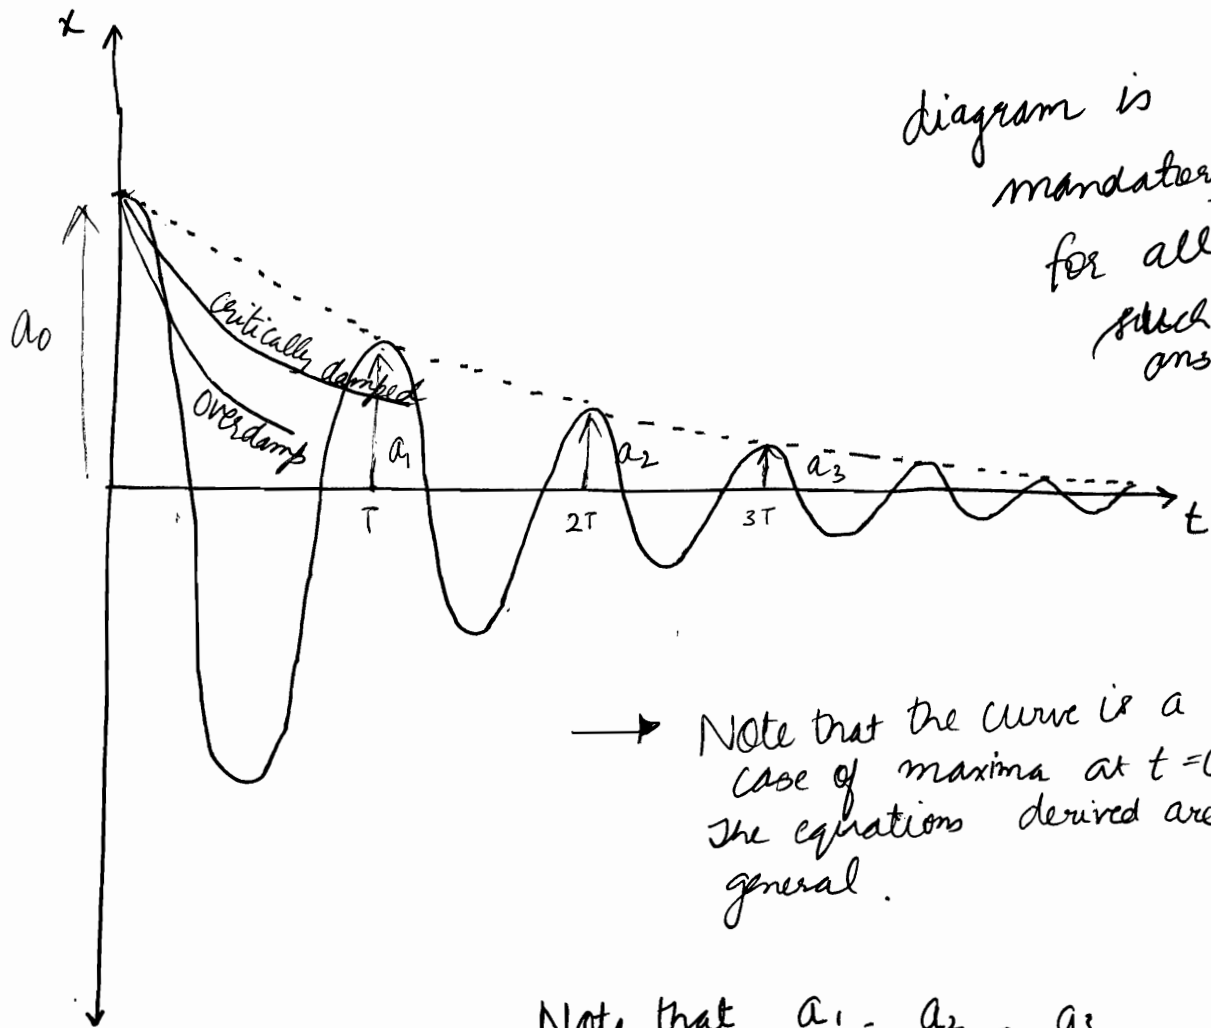 x
diagram is
mandator
for all
such
ans
a0
critically damped
overdamp
a1
a2
a3
T
2T
3T
t
→ Note that the curve is a
case of maxima at t =0
The equations derived are
general.
Note that a1 = a2 = a3